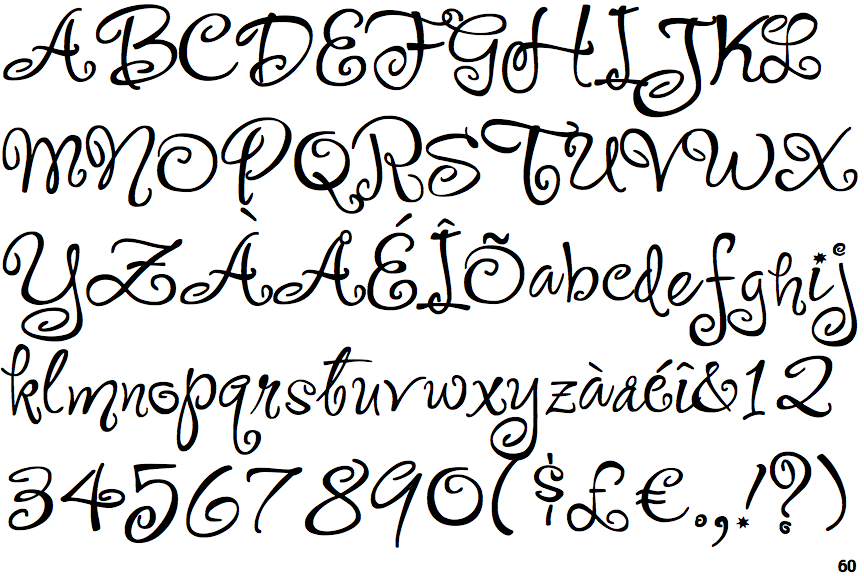 ABCDEFGHIJKL
MNOPQRSTUVWX
YZÀÅÉÎÕabcdefghij
klmnopqrstuvwxyzàåéî&12
34567890($£€.,!?)
60